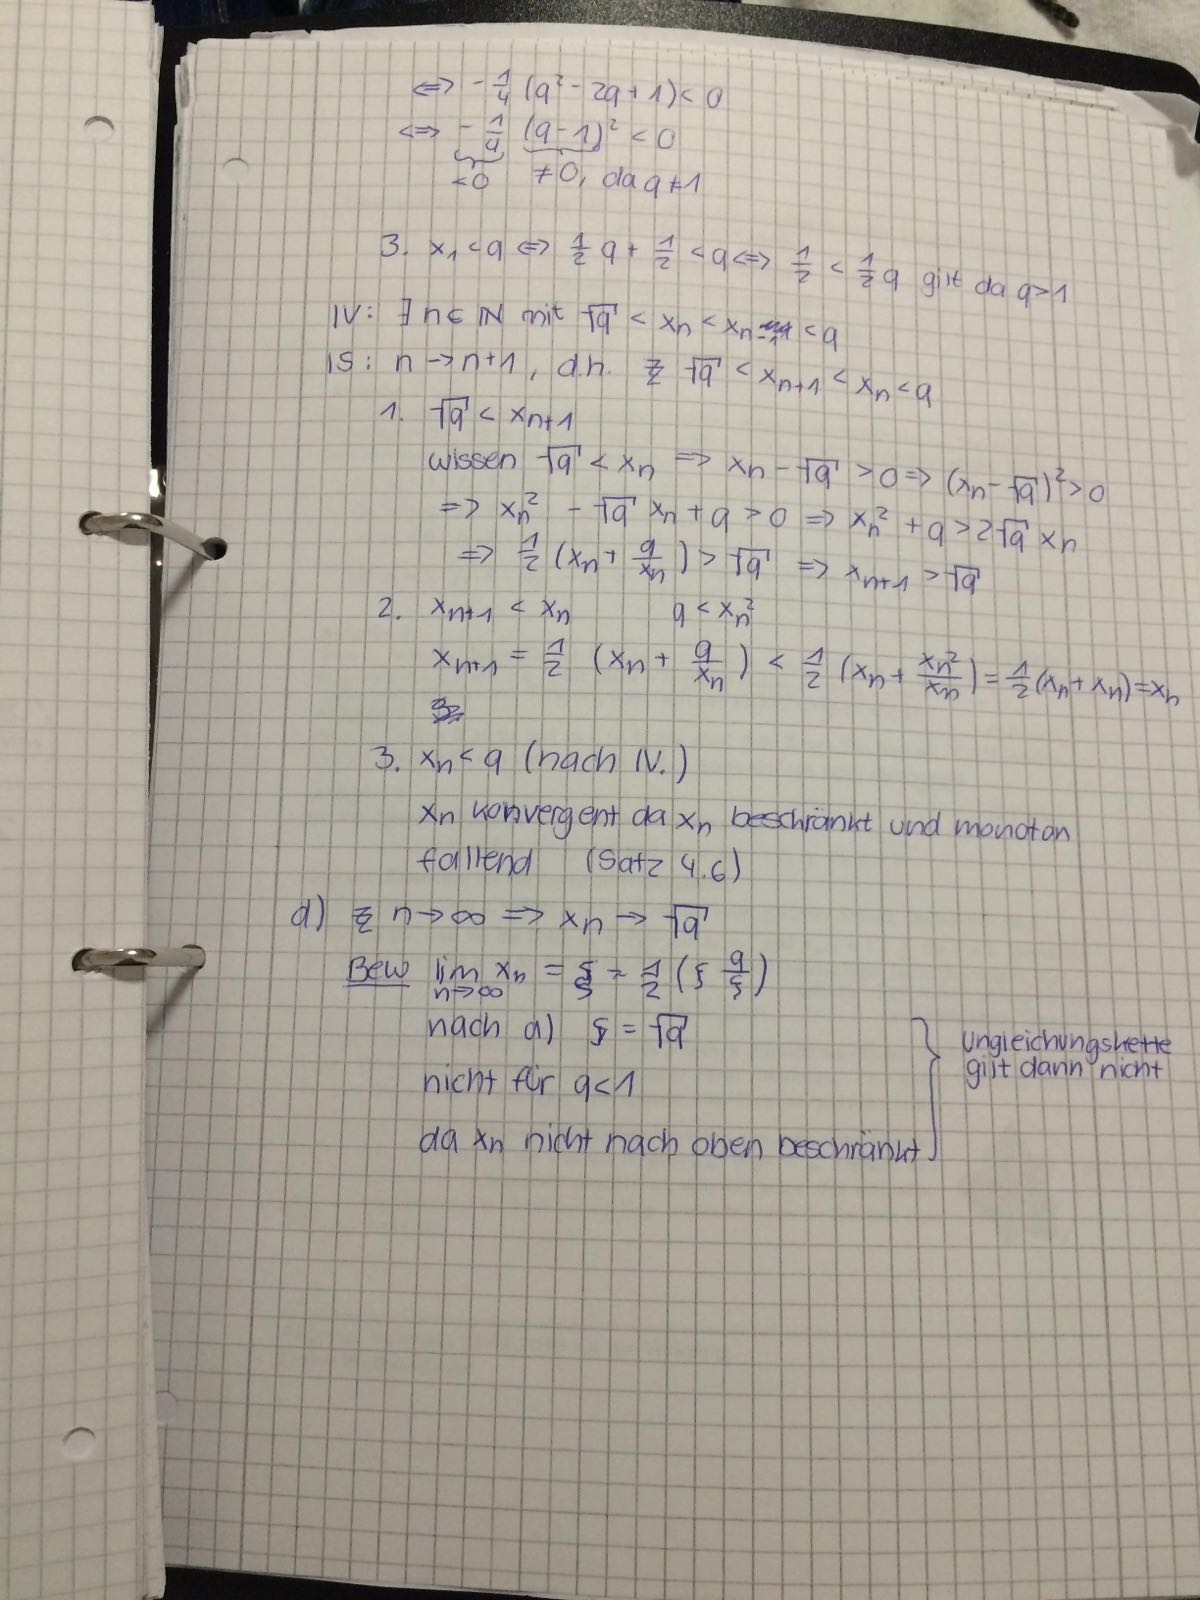 ⇔ -1/4 (a² - 2a + 1) < 0
⇔ -1/4 (a - 1)² < 0
<0 ≠0, da a ≠ 1
3. x₁ < a ⇔ 1/2 a + 1/2 < a ⇔ 1/2 < 1/2 a gilt da a > 1
IV: ∃ n ∈ ℕ mit √a < xₙ < xₙ₋₁ < a
IS: n → n+1, d.h. zz √a < xₙ₊₁ < xₙ < a
1. √a < xₙ₊₁
wissen √a < xₙ ⇒ xₙ - √a > 0 ⇒ (xₙ - √a)² > 0
⇒ xₙ² - √a xₙ + a > 0 ⇒ xₙ² + a > 2√a xₙ
⇒ 1/2 (xₙ + a/xₙ) > √a ⇒ xₙ₊₁ > √a
2. xₙ₊₁ < xₙ a < xₙ²
xₙ₊₁ = 1/2 (xₙ + a/xₙ) < 1/2 (xₙ + xₙ²/xₙ) = 1/2 (xₙ + xₙ) = xₙ
3. xₙ < a (nach IV.)
xₙ konvergent da xₙ beschränkt und monoton
fallend (Satz 4.6)
d) zz n → ∞ ⇒ xₙ → √a
Bew lim n→∞ xₙ = ξ = 1/2 (ξ a/ξ)
nach a) ξ = √a
nicht für a < 1
da xₙ nicht nach oben beschränkt
Ungleichungskette
gilt dann nicht